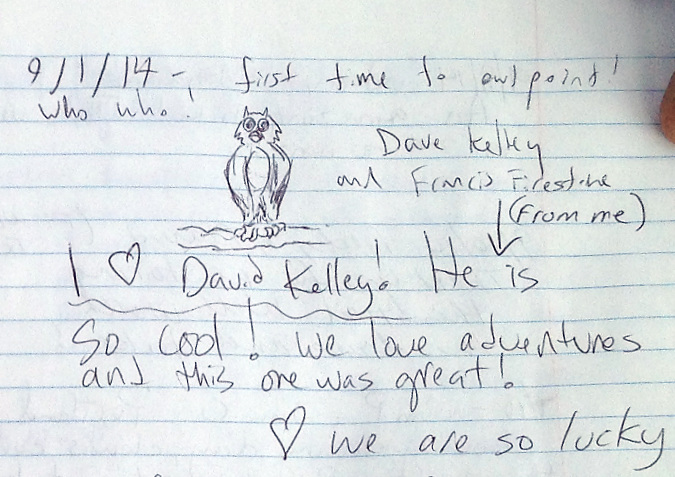 9/1/14 - first time to owl point!
who who!
Dave Kelley
and Francis Firestine
(From me)
I ♡ David Kelley! He is
So cool! We love adventures
and this one was great!
♡ we are so lucky